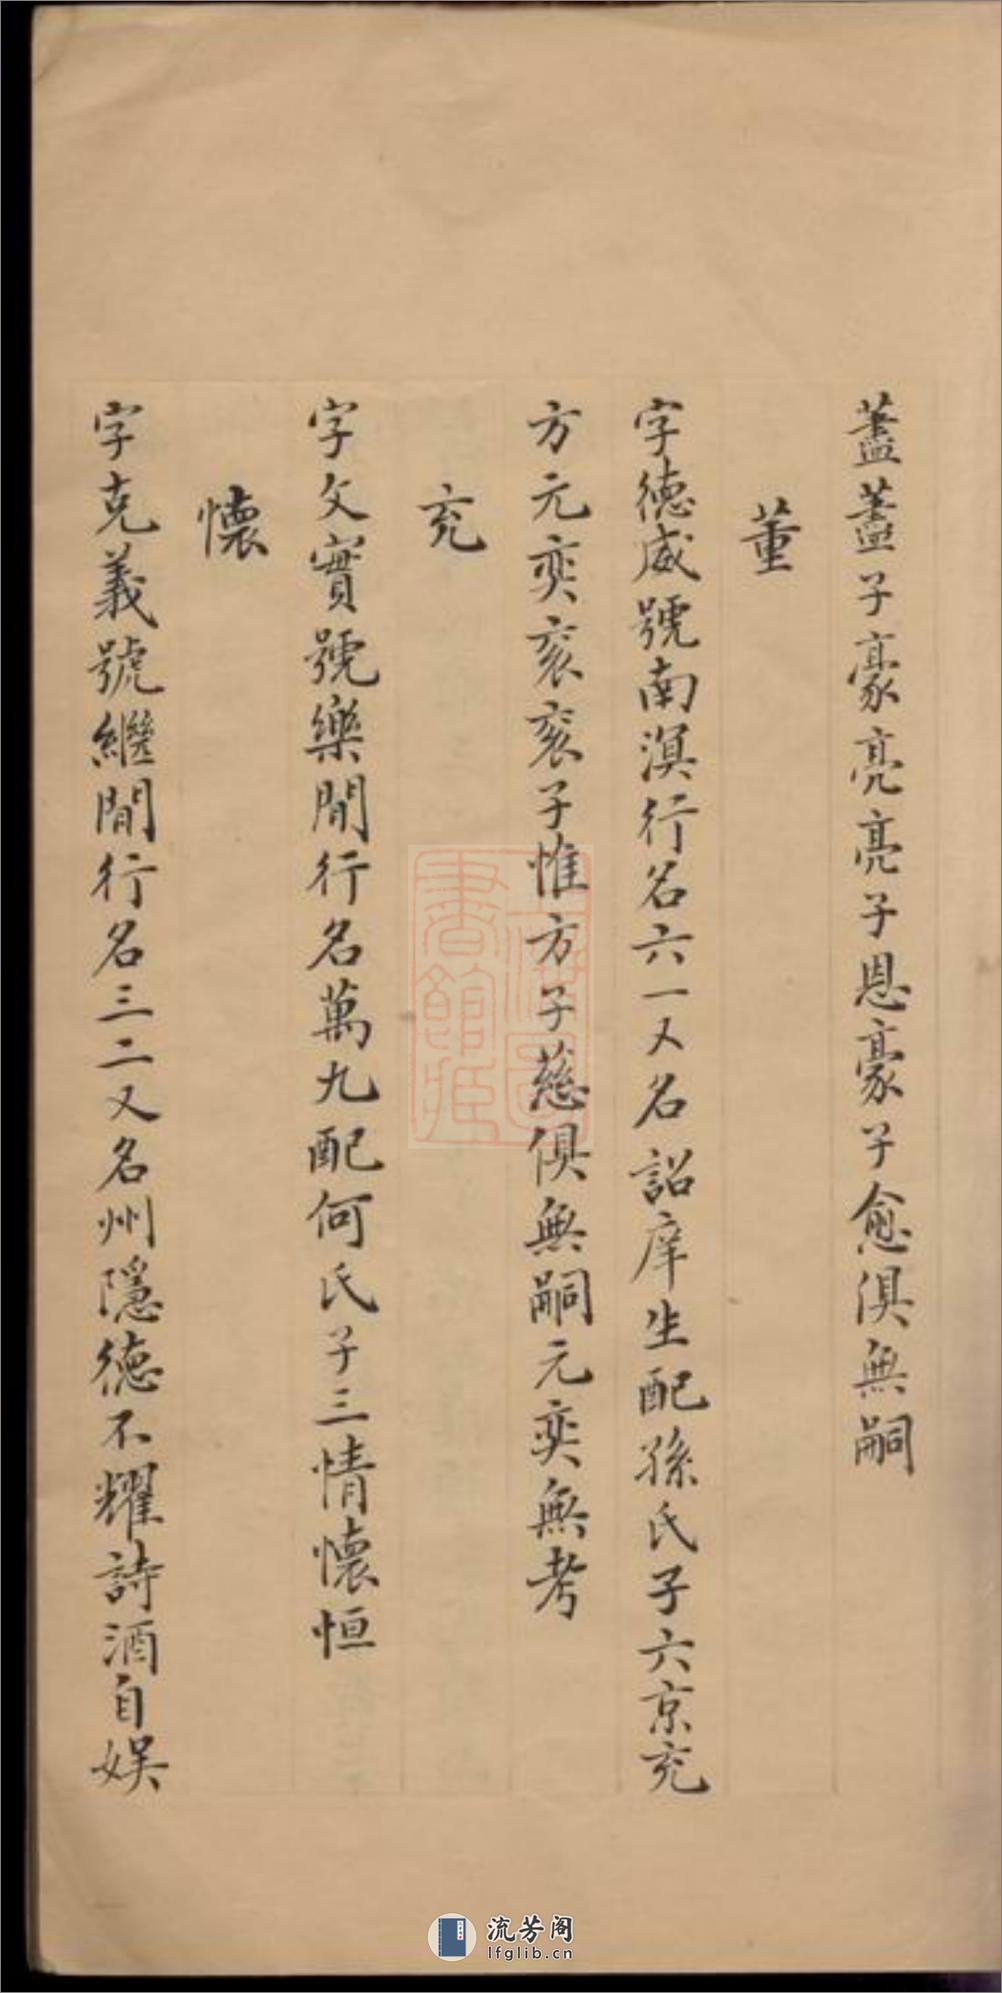 藎藎子豪亮亮子恩豪子愈俱無嗣
董
字德威號南溟行名六一又名詔庠生配孫氏子六京充
方元奕衮衮子惟方子慈俱無嗣元奕無考
充
字文實號樂閒行名萬九配何氏子三情懷恒
懷
字克義號繼閒行名三二又名州隱德不耀詩酒自娛
書館藏
流芳阁
lfglib.cn